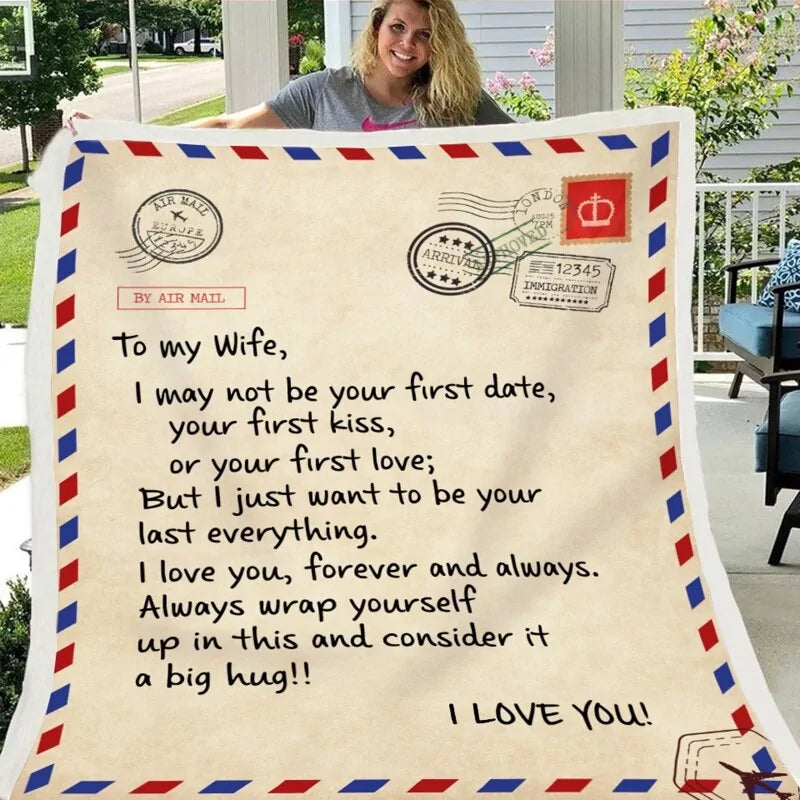 AIR MAIL
EUROPE
LONDON
AUG 25
7PM
ARRIVAL
12345
IMMIGRATION
BY AIR MAIL
To my Wife,
I may not be your first date,
your first kiss,
or your first love;
But I just want to be your
last everything.
I love you, forever and always.
Always wrap yourself
up in this and consider it
a big hug!!
I LOVE YOU!